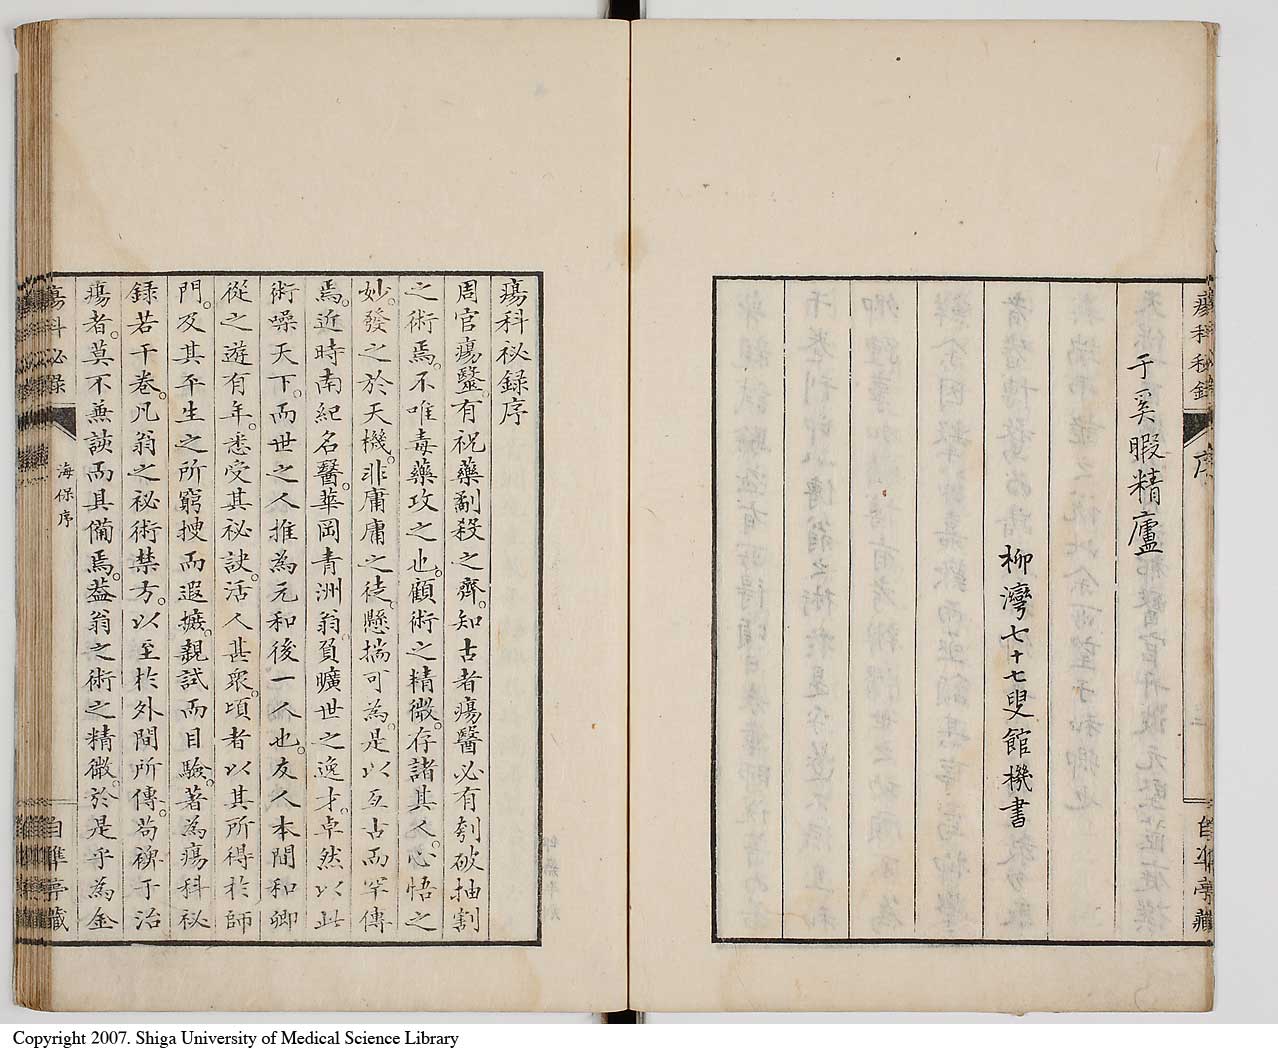 瘍科秘錄
序
自準亭藏
于奚暇精廬
柳灣七十七叟館機書
瘍科祕録序
周官瘍醫。有祝藥劀殺之齊。知古者瘍醫必有刳破抽割
之術焉。不唯毒藥攻之也。顧術之精微。存諸其人。心悟之
妙。發之於天機。非庸庸之徒。懸揣可為。是以亙古而罕傳
焉。近時南紀名醫。華岡青洲翁。負曠世之逸才。卓然以此
術噪天下。而世之人推為元和後一人也。友人本間和卿
從之遊有年。悉受其秘訣。活人甚衆。項者以其所得於師
門。及其平生之所窮搜而遐摭。親試而目驗。著為瘍科祕
録若干卷。凡翁之祕術禁方。以至於外間所傳。苟裨于治
瘍者。莫不兼該而具備焉。葢翁之術之精微。於是乎為金
瘍科祕錄
海保序
自準亭藏
Copyright 2007. Shiga University of Medical Science Library